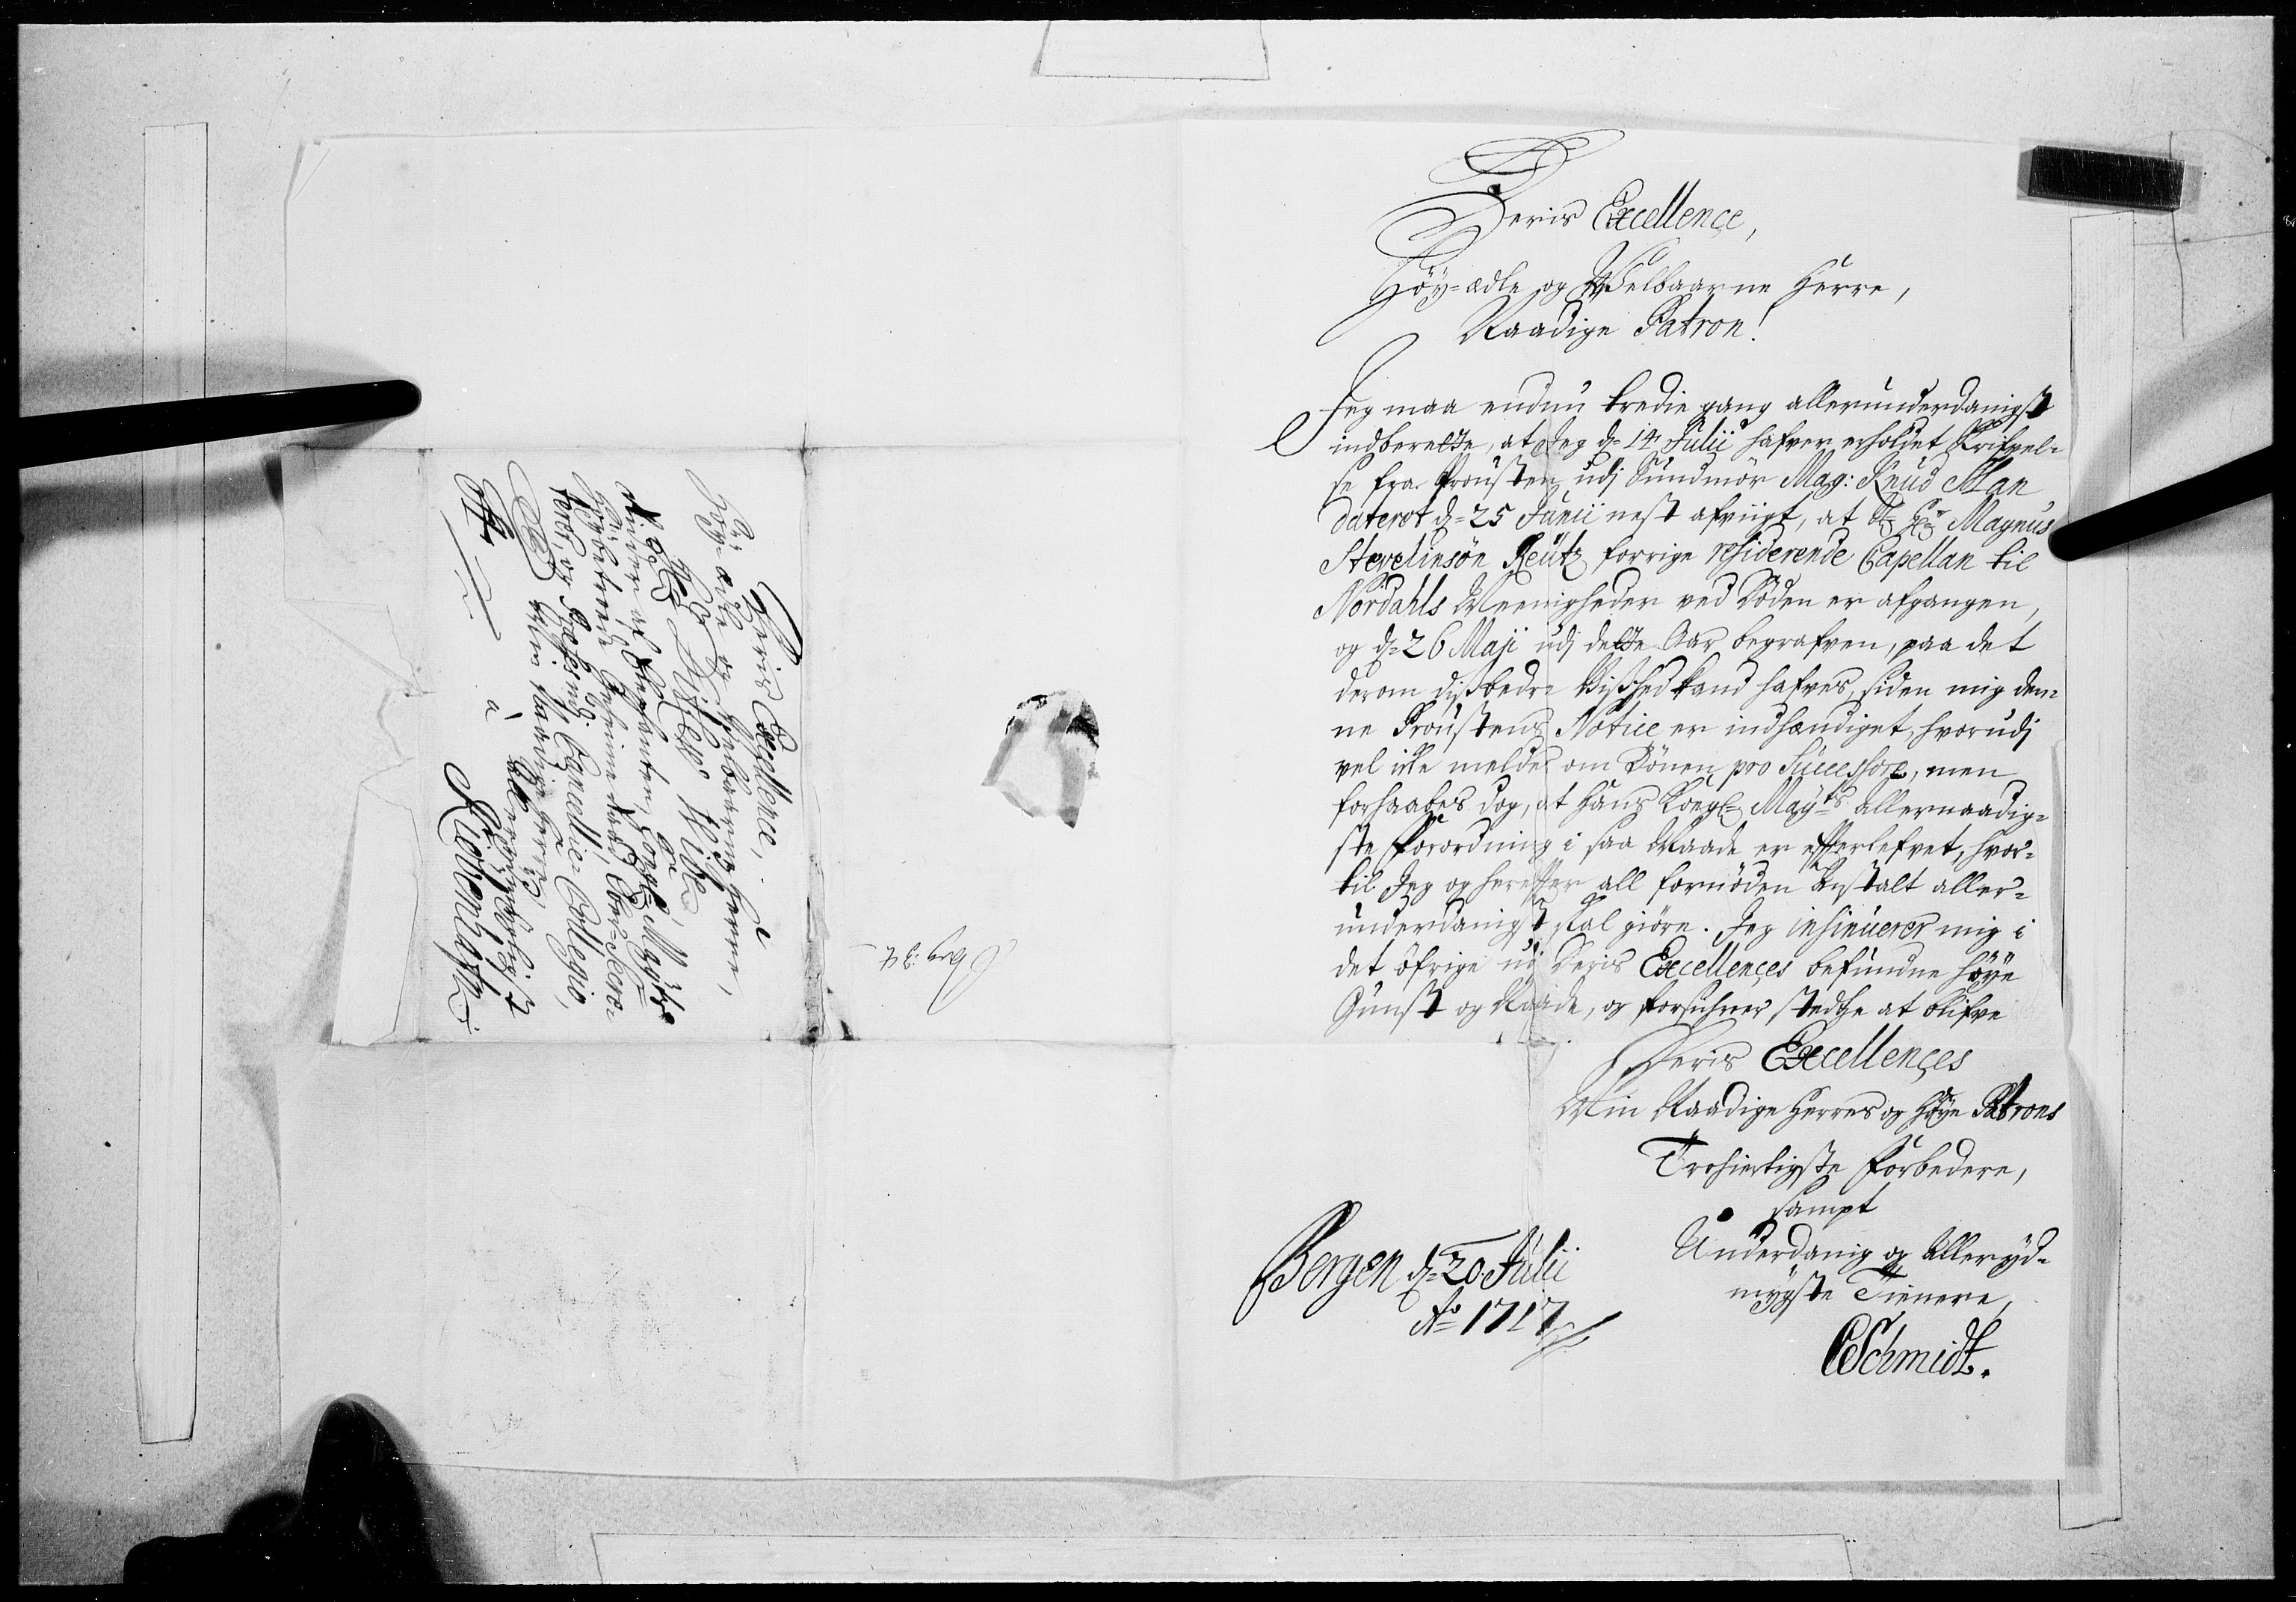 Deris Excellence,
Höy-ædle og Welbaarne Herre,
Naadige Patron!
Jeg maa endnu tredie gang allerunderdanigst
indberette, at Jeg d: 14 Julii hafver erholdet Skrifvel-
se fra Prousten udj Sundmör Mag: Knud Man
dateret d: 25 Junii nest afvigt, at Sl: Hr: Magnus
Stevelinsön Reutz forrige residerende Capellan til
Nordahls Meenigheder ved Döden er afgangen,
og d: 26 Maji udj dette Aar begrafven, paa det
derom dissbedre Visshed kand hafves, siden mig den-
ne Proustens Notice er indhændiget, hvorudj
vel icke meldes om Bönen pro Successore, men
forhaabes dog, at Hans Kongl: Mayts allernaadig-
ste Forordning i saa Maade er efterlefvet, hvor-
til Jeg og herefter all fornöden Anstalt aller-
underdanigst skal giöre. Jeg insinuerer mig i
det öfrige udj Deris Excellences befundne höye
Gunst og Naade, og forsichrer stedtze at blifve
Deris Excellences
Min Naadige Herres og Höye Patrons
Trohiertigste Forbedere,
sampt
Underdanig og Alleryd-
mygste Tienere,
CSchmidt.
Bergen d: 20. Julii
Ao 1717
Deris Excellence,
Höy-ædle og Velbaarne Herre,
Ridder af Elephanten, Kongl: Mayts
Geheime Raad, Ober-Secre-
terer, og Cancellie-Collegio,
à
Kiöbenhafn.